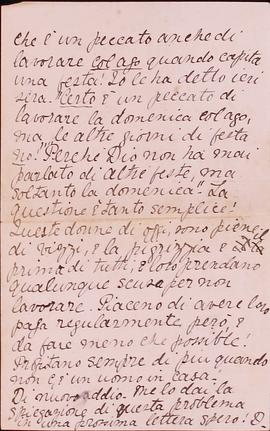 che è un peccato anche di
lavorare col ago quando capita
una festa! Io le ha detto ieri
sera. "Certo è un peccato di
lavorare la domenica col ago,
ma le altre giorni di festa
no!" Perche Dio non ha mai
parlato di altre feste, ma
soltanto la domenica". La
questione è tanto semplice!
Queste donne di oggi, sono piene
di vizzi, e la pigrizzia è
prima di tutti, e loro prendano
qualunque scusa per non
lavorare. Piaceno di avere loro
paga regularmente però, e
da fare meno che possibile!
Protestano sempre di piu quando
non c'è un uomo in casa.
Di nuovo addio. Me lo dai la
spiegazione di questa problema
in una prossima lettera spero!